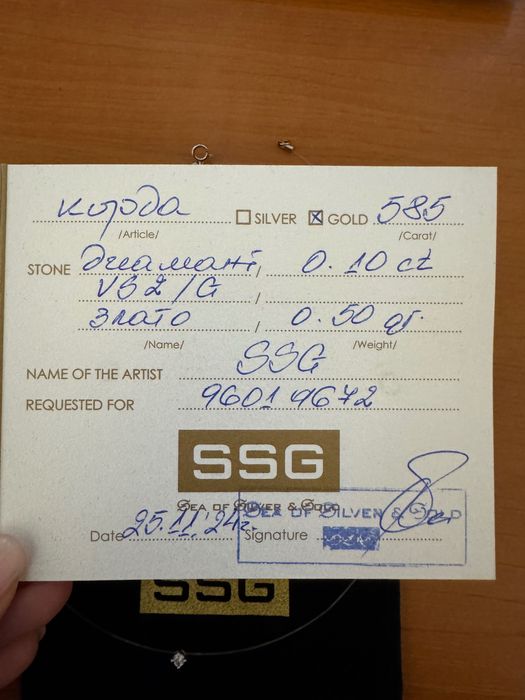 корда SILVER ☒ GOLD 585
/Article/ /Carat/
STONE диамант / 0.10 ct
VS2/G /
злато / 0.50 gr.
/Name/ /Weight/
NAME OF THE ARTIST SSG
REQUESTED FOR 9601 9672
SSG
SEA OF SILVER & GOLD
SEA OF SILVER & GOLD
Date 25.11.24г. Signature
SSG